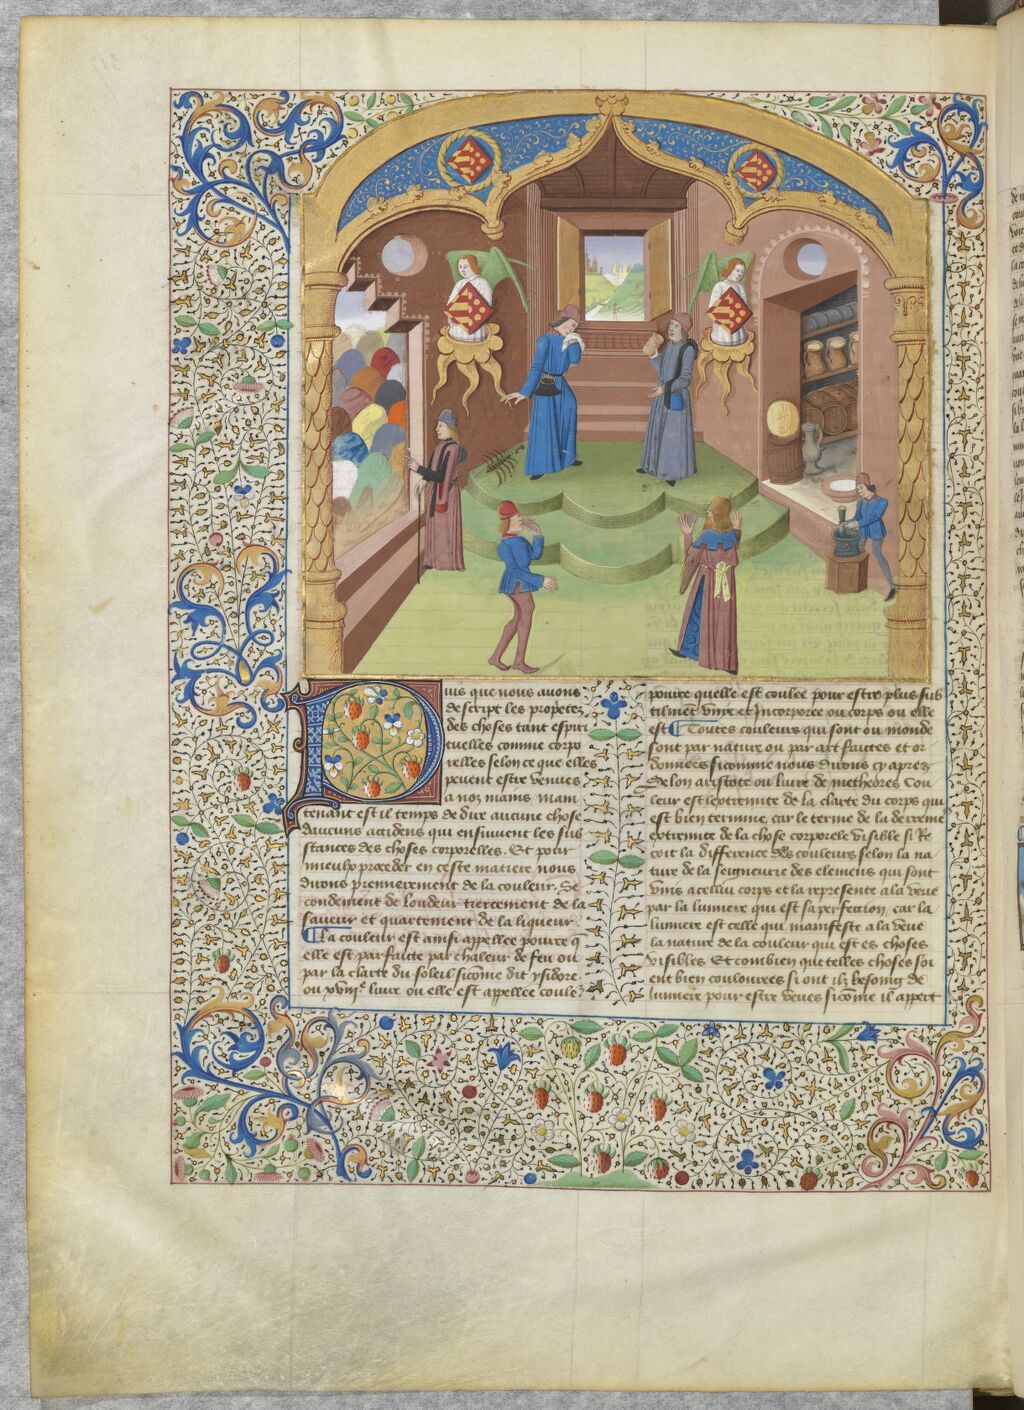 uis que nous auons
descript les propetez
des choses tant espiri
tuelles comme corpo
relles selon ce que elles
peuent estre venues
a noz mains main
tenant est il temps de dire aucune chose
daucuns accidens qui ensuiuent les sub
stances des choses corporelles. Et pour
mieulx proceder en ceste matiere nous
dirons premierement de la couleur. Se
condement de loudeur tiercement de la
saueur et quartement de la liqueur
La couleur est ainsi appellee pource q̄
elle est parfaicte par chaleur de feu ou
par la clarte du soleil sicōme dit ysidore
ou xviiiᵉ liure ou elle est appellee coule
pource quelle est coulee pour estre plus sub
tilmēt vnye et Incorporee ou corps ou elle
est Toutes couleurs qui sont ou monde
sont par nature ou par art faictes et or
donnees sicomme nous dirons cy aprez
Selon aristote ou liure de metheores Cou
leur est lextremite de la clarte du corps qui
est bien termine, car le terme de la derreine
extremite de la chose corporele visible si Re
coit la difference des couleurs selon la na
ture de la seigneurie des elemens qui sont
vnis a cellui corps et la represente a la veue
par la lumiere qui est sa perfection, car la
lumiere est celle qui manifeste a la veue
la nature de la couleur qui est es choses
visibles Et combien que telles choses soi
ent bien coulourees si ont ilz besoing de
lumiere pour estre veues sicōme il appert